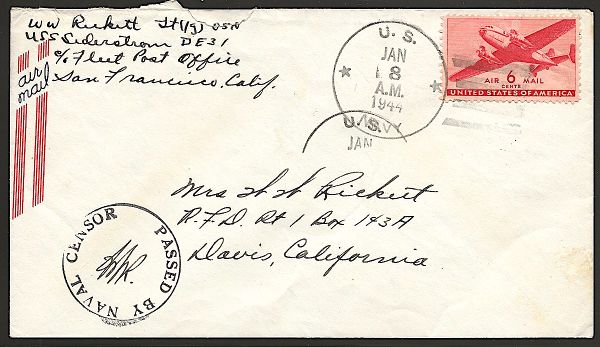 WW Rickett Lt(jg) USN
USS Sederstrom DE31
c/o Fleet Post Office
San Francisco, Calif.
air mail
U. S.
JAN
8
A.M.
1944
NAVY
U.S.
JAN
AIR 6 MAIL
CENTS
UNITED STATES OF AMERICA
Mrs W W Rickett
R.F.D. Rt 1 Box 143A
Davis, California
PASSED BY NAVAL CENSOR